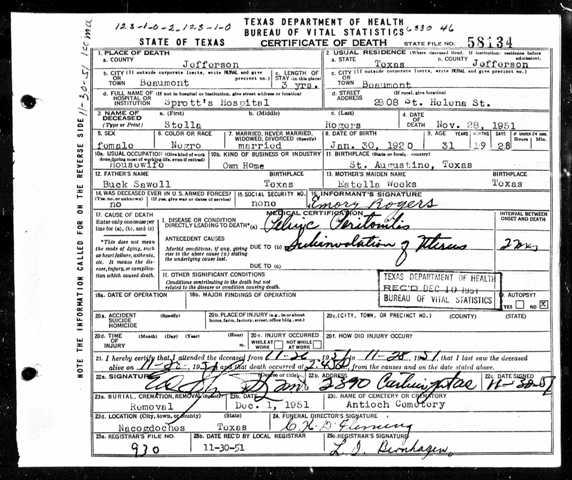 123-1-0-2, 123-1-0
TEXAS DEPARTMENT OF HEALTH
BUREAU OF VITAL STATISTICS 6330 46
STATE OF TEXAS CERTIFICATE OF DEATH STATE FILE NO. 58134
1. PLACE OF DEATH 2. USUAL RESIDENCE (Where deceased lived. If institution: residence before admission).
a. COUNTY Jefferson a. STATE Texas b. COUNTY Jefferson
b. CITY (If outside corporate limits, write RURAL and give precinct no.) OR TOWN Beaumont c. LENGTH OF STAY (in this place) 3 yrs. c. CITY (If outside corporate limits, write RURAL and give precinct no.) OR TOWN Beaumont
d. FULL NAME OF (If not in hospital or institution, give street address or location) HOSPITAL OR INSTITUTION Sprott's Hospital d. STREET ADDRESS 2808 St. Helena St.
3. NAME OF DECEASED (Type or Print) a. (First) Stella b. (Middle) c. (Last) Rogers 4. DATE OF DEATH Nov. 28, 1951
5. SEX female 6. COLOR OR RACE Negro 7. MARRIED, NEVER MARRIED, WIDOWED, DIVORCED (Specify) married 8. DATE OF BIRTH Jan. 30, 1920 9. AGE YEARS 31 MONTHS 9 DAYS 28
10a. USUAL OCCUPATION (Give kind of work done during most of working life, even if retired) Housewife 10b. KIND OF BUSINESS OR INDUSTRY Own Home 11. BIRTHPLACE (State or foreign country) St. Augustine, Texas
12. FATHER'S NAME Buck Sawell Texas 13. MOTHER'S MAIDEN NAME Estella Weeks Texas
14. WAS DECEASED EVER IN U.S. ARMED FORCES? (Yes, no, or unknown) no 15. SOCIAL SECURITY NO. none 16. INFORMANT'S SIGNATURE Emory Rogers
17. CAUSE OF DEATH MEDICAL CERTIFICATION INTERVAL BETWEEN ONSET AND DEATH
Enter only one cause per line for (a), (b), and (c) I. DISEASE OR CONDITION DIRECTLY LEADING TO DEATH* (a) Pelvic Peritonitis
*This does not mean the mode of dying, such as heart failure, asthenia, etc. It means the disease, injury, or complication which caused death.
ANTECEDENT CAUSES
Morbid conditions, if any, giving rise to the above cause (a) stating the underlying cause last. DUE TO (b) Subinvolation of Uterus
DUE TO (c)
II. OTHER SIGNIFICANT CONDITIONS
Conditions contributing to the death but not related to the disease or condition causing death.
TEXAS DEPARTMENT OF HEALTH
REC'D DEC 10 1951
BUREAU OF VITAL STATISTICS
18a. DATE OF OPERATION 18b. MAJOR FINDINGS OF OPERATION 19. AUTOPSY YES NO X
20a. ACCIDENT SUICIDE HOMICIDE (Specify) 20b. PLACE OF INJURY (e.g., in or about home, farm, factory, street, office bldg., etc.) 20c. (CITY, TOWN, OR PRECINCT NO.) (COUNTY) (STATE)
20d. TIME OF INJURY (Month) (Day) (Year) (Hour) 20e. INJURY OCCURRED WHILE AT WORK NOT WHILE AT WORK 20f. HOW DID INJURY OCCUR?
21. I hereby certify that I attended the deceased from 11-26 1951 to 11-28 1951, that I last saw the deceased
alive on 1951 and that death occurred at from the causes and on the date stated above.
22a. SIGNATURE (Degree or title) 22b. ADDRESS 2390 22c. DATE SIGNED
23a. BURIAL, CREMATION, REMOVAL (Specify) Removal 23b. DATE Dec. 1, 1951 23c. NAME OF CEMETERY OR CREMATORY Antioch Cemetery
23d. LOCATION (City, town, or county) (State) Nacogdoches Texas 24. FUNERAL DIRECTOR'S SIGNATURE Fleming
25a. REGISTRAR'S FILE NO. 930 25b. DATE REC'D BY LOCAL REGISTRAR 11-30-51 25c. REGISTRAR'S SIGNATURE
NOTE THE INFORMATION CALLED FOR ON THE REVERSE SIDE 11-30-51